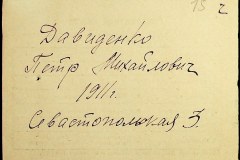 15 2
Давиденко
Петр Михайлович
1911г.
Севастопольская 3.